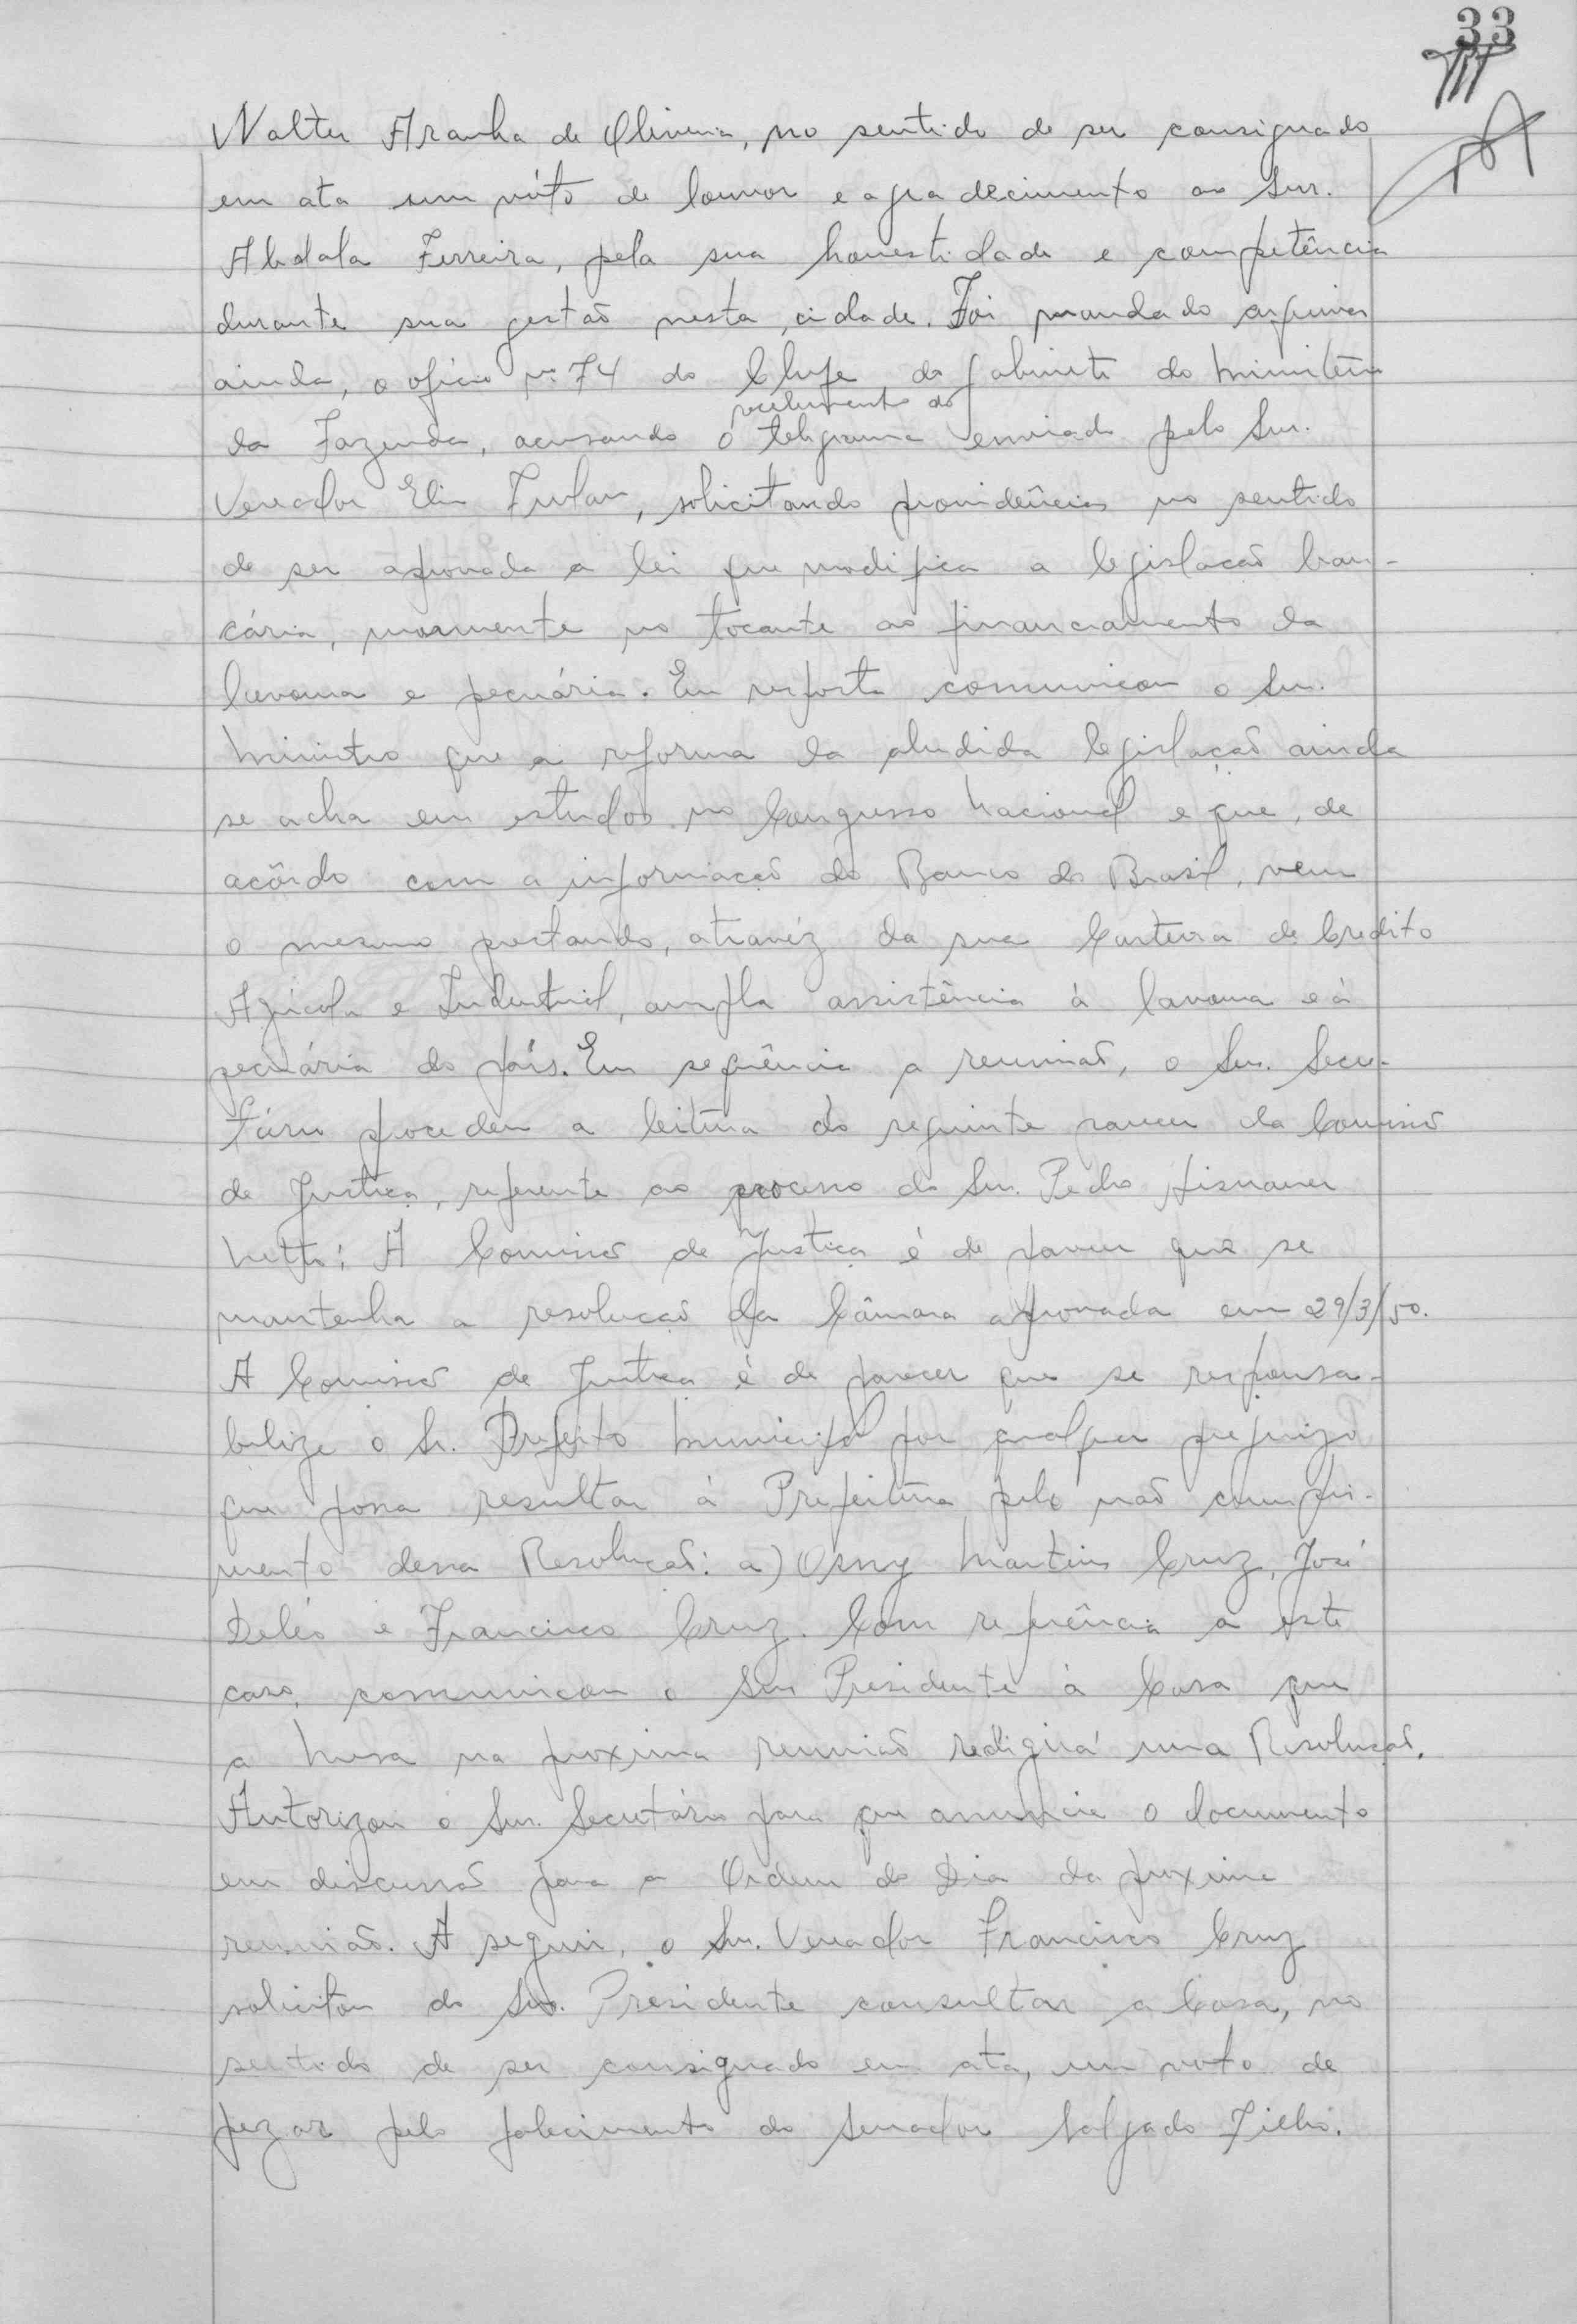 33
Walter Aranha de Oliveira, no sentido de ser consignado
em ata um vóto de louvor e agradecimento ao Snr.
Abdala Ferreira, pela sua honestidade e competência
durante sua gestão nesta cidade. Foi mandado arquivar
ainda, o oficio nº 74 do Chefe do Gabinete do Ministério
recebimento do
da Fazenda, acusando o telegrama enviado pelo Snr.
Vereador Elin, solicitando providências no sentido
de ser aprovada a lei que modifica a legislação ban-
cária, mormente no tocante ao financiamento da
lavoura e pecuária. Em resposta comunicou o Snr.
Ministro que a reforma da aludida legislação ainda
se acha em estudos no Congresso Nacional e que, de
acôrdo com a informação do Banco do Brasil, vem
o mesmo prestando, atravéz da sua Carteira de Credito
Agricola e Industrial, ampla assistência à lavoura e à
pecuária do país. Em seqüência a reunião, o Snr. Secre-
tário procedeu a leitura do seguinte parecer da Comissão
de Justiça, referente ao processo do Snr. Pedro
Netto: A Comissão de Justiça é de parecer que se
mantenha a resolução da Câmara aprovada em 29/3/50.
A Comissão de Justiça é de parecer que se responsa-
bilize o Sr. Prefeito Municipal por qualquer prejuizo
que possa resultar à Prefeitura pelo não cumpri-
mento dessa Resolução: a) Osny Martins Cruz, José
Deléo e Francisco Cruz. Com referência a este
caso, comunicou o Snr Presidente à Casa que
a Mesa na proxima reunião redigirá uma Resolução.
Autorizou o Snr. Secretário para que anuncie o documento
em discussão para a Ordem do Dia da proxima
reunião. A seguir, o Snr. Vereador Francisco Cruz
solicitou do Snr. Presidente consultar a Casa, no
sentido de ser consignado em ata, um voto de
pezar pelo falecimento do Senador Salgado Filho.